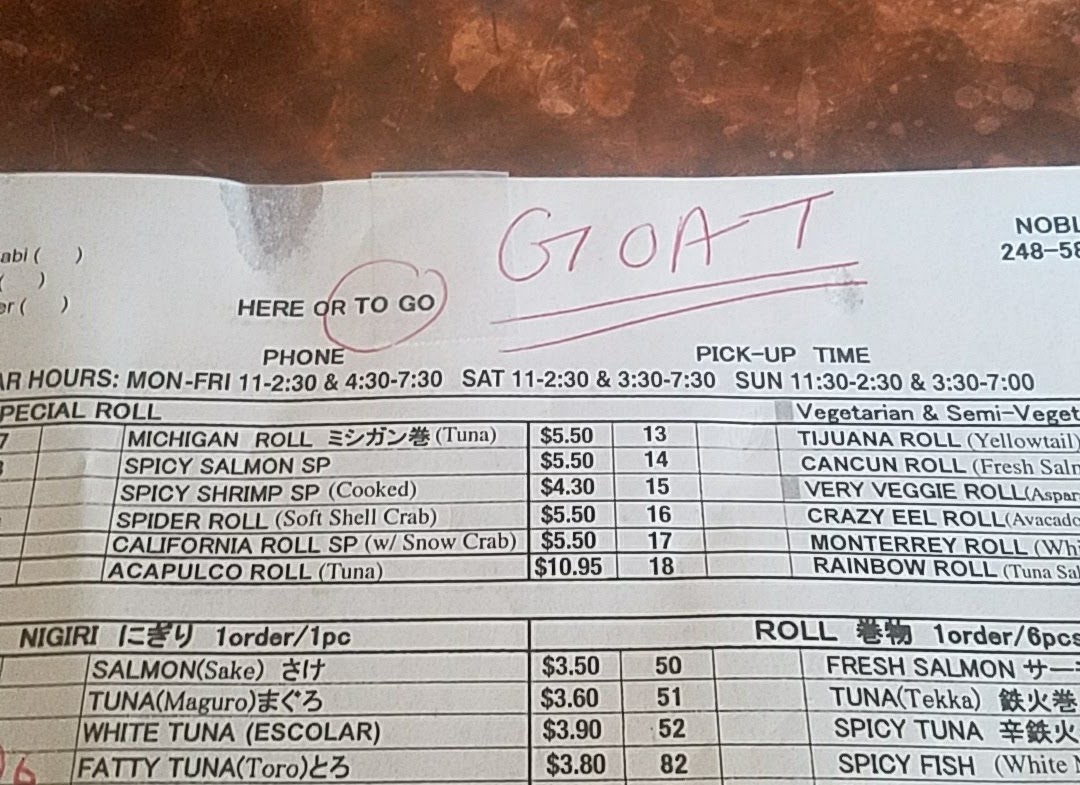 GOAT
NOBL
248-58
abi (    )
(    )
er (    )
HERE OR TO GO
PHONE
PICK-UP TIME
AR HOURS: MON-FRI 11-2:30 & 4:30-7:30 SAT 11-2:30 & 3:30-7:30 SUN 11:30-2:30 & 3:30-7:00
PECIAL ROLL Vegetarian & Semi-Veget
7 MICHIGAN ROLL ミシガン巻 (Tuna) $5.50 13 TIJUANA ROLL (Yellowtail)
SPICY SALMON SP $5.50 14 CANCUN ROLL (Fresh Saln
SPICY SHRIMP SP (Cooked) $4.30 15 VERY VEGGIE ROLL(Aspar
SPIDER ROLL (Soft Shell Crab) $5.50 16 CRAZY EEL ROLL(Avacado
CALIFORNIA ROLL SP (w/ Snow Crab) $5.50 17 MONTERREY ROLL (Whi
ACAPULCO ROLL (Tuna) $10.95 18 RAINBOW ROLL (Tuna Sal
NIGIRI にぎり 1order/1pc ROLL 巻物 1order/6pcs
SALMON(Sake) さけ $3.50 50 FRESH SALMON サー
TUNA(Maguro)まぐろ $3.60 51 TUNA(Tekka) 鉄火巻
WHITE TUNA (ESCOLAR) $3.90 52 SPICY TUNA 辛鉄火
6 FATTY TUNA(Toro)とろ $3.80 82 SPICY FISH (White